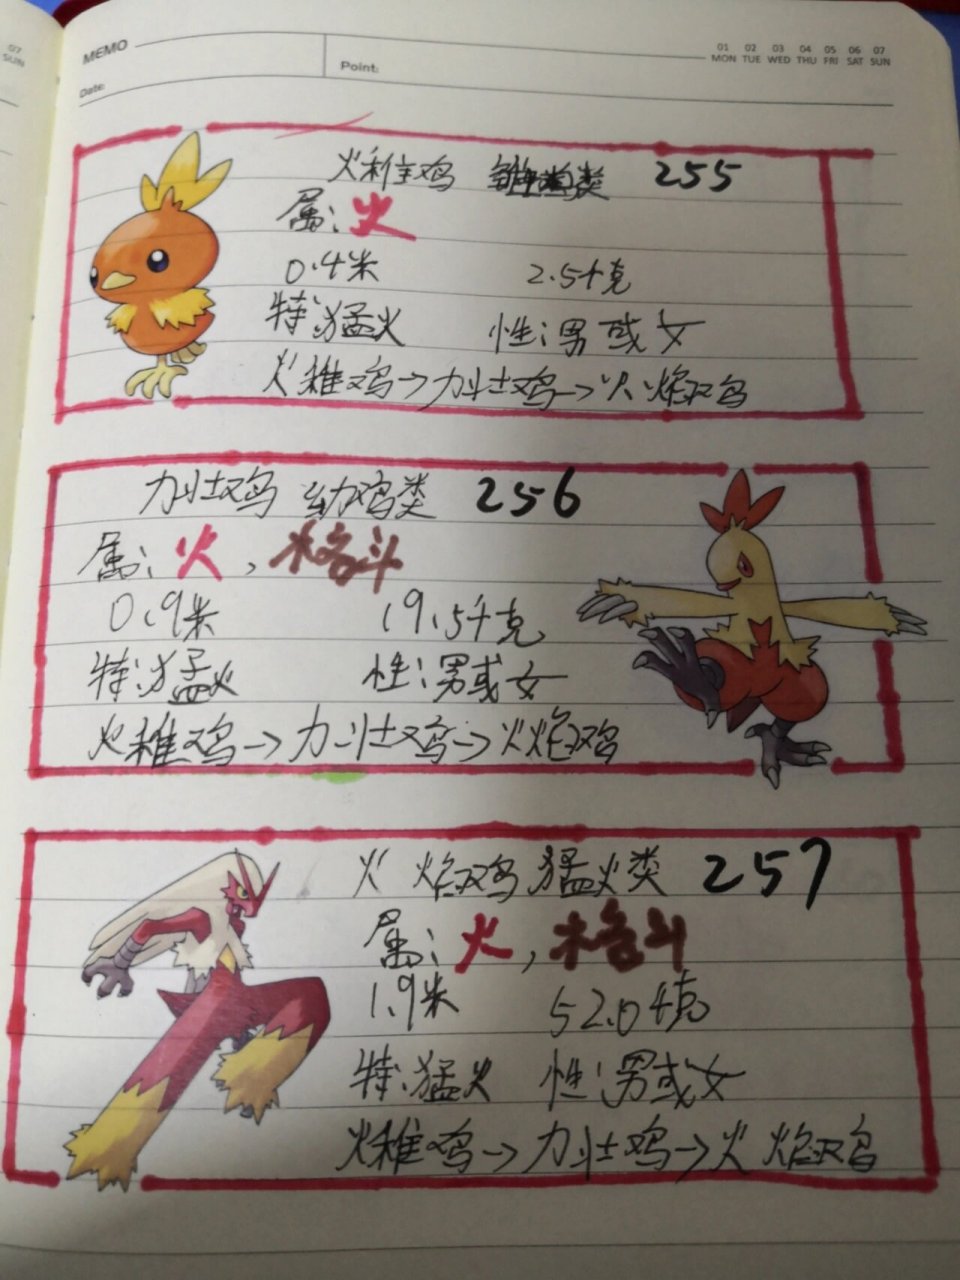 07
SUN
MEMO
Point:
Date:
01 02 03 04 05 06 07
MON TUE WED THU FRI SAT SUN
火稚鸡 雏鸡类 255
属:火
0.4米 2.5千克
特:猛火 性:男或女
火稚鸡→力壮鸡→火焰鸡
力壮鸡 幼鸡类 256
属:火,格斗
0.9米 19.5千克
特:猛火 性:男或女
火稚鸡→力壮鸡→火焰鸡
火焰鸡 猛火类 257
属:火,格斗
1.9米 52.0千克
特:猛火 性:男或女
火稚鸡→力壮鸡→火焰鸡